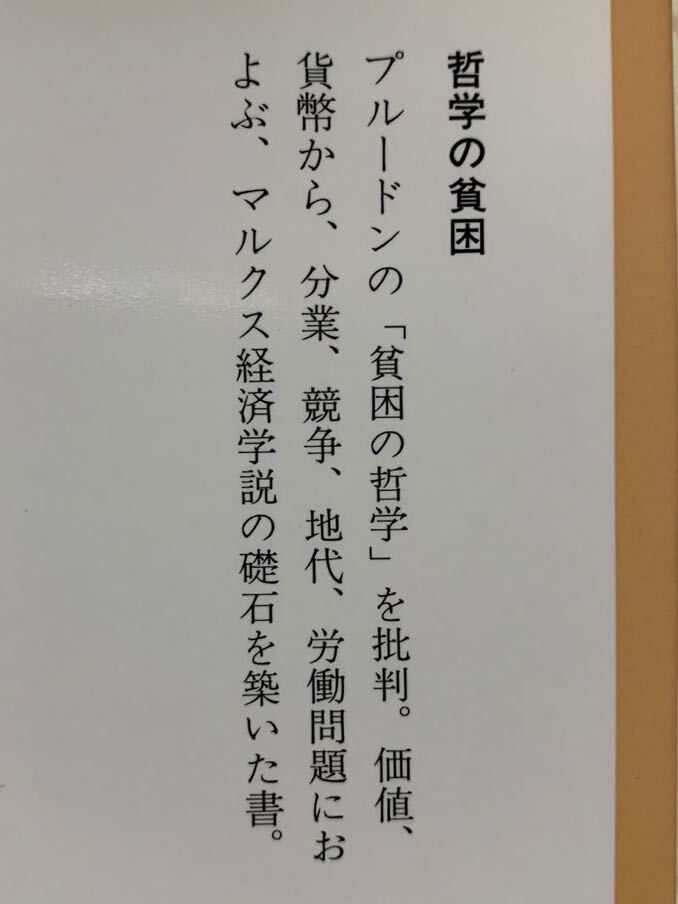 哲学の貧困
プルードンの「貧困の哲学」を批判。価値、
貨幣から、分業、競争、地代、労働問題にお
よぶ、マルクス経済学説の礎石を築いた書。